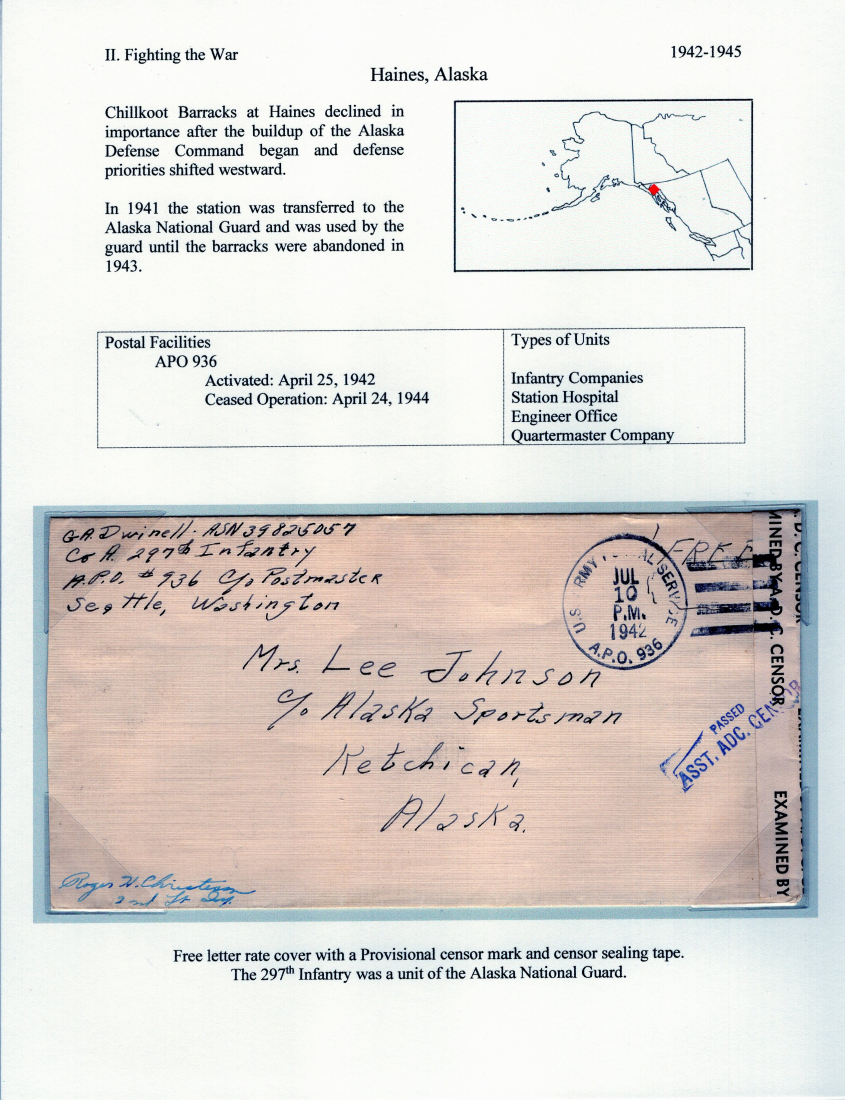 II. Fighting the War 1942-1945
Haines, Alaska
Chillkoot Barracks at Haines declined in
importance after the buildup of the Alaska
Defense Command began and defense
priorities shifted westward.
In 1941 the station was transferred to the
Alaska National Guard and was used by the
guard until the barracks were abandoned in
1943.
Postal Facilities
APO 936
Activated: April 25, 1942
Ceased Operation: April 24, 1944
Types of Units
Infantry Companies
Station Hospital
Engineer Office
Quartermaster Company
G.A. Dwinell - ASN 39825057
Co A. 297th Infantry
A.P.O. #936 c/o Postmaster
Seattle, Washington
FREE
U.S. ARMY POSTAL SERVICE
JUL
10
P.M.
1942
A.P.O. 936
Mrs. Lee Johnson
c/o Alaska Sportsman
Ketchican,
Alaska.
PASSED
ASST. ADC. CENSOR
D. C. CENSOR
MINED BY A. D. C. CENSOR
EXAMINED BY
Roger W. Christensen
2nd Lt
Free letter rate cover with a Provisional censor mark and censor sealing tape.
The 297th Infantry was a unit of the Alaska National Guard.